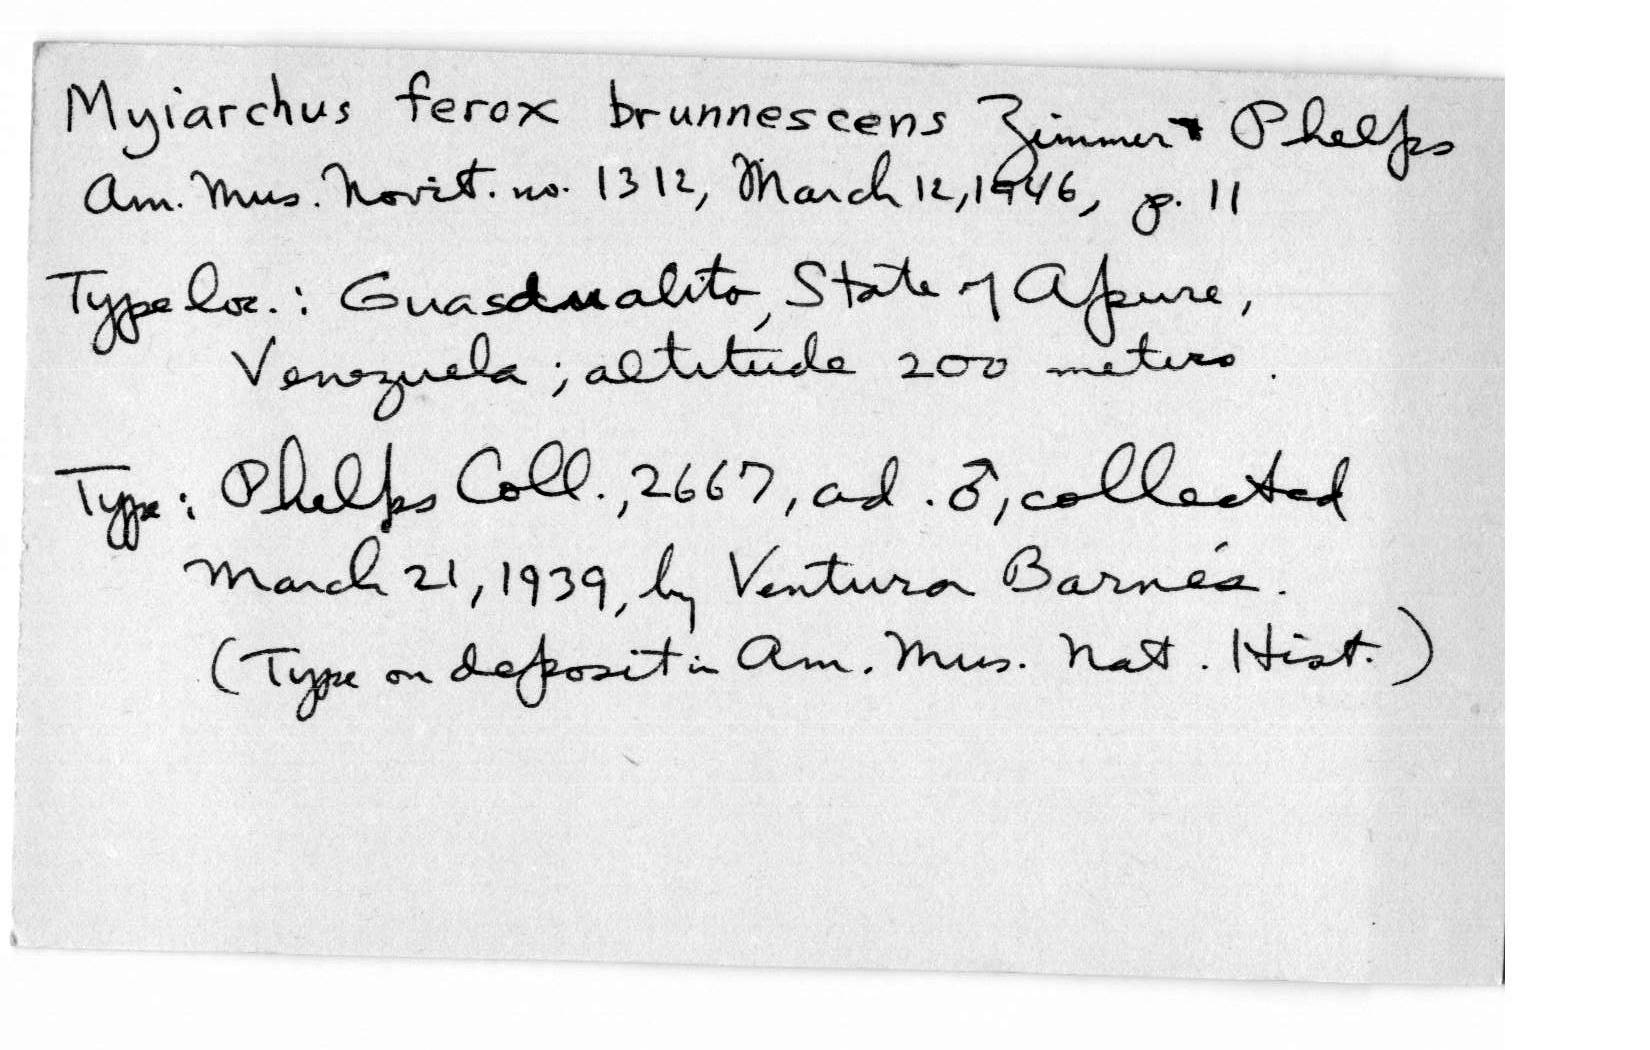 Myiarchus ferox brunnescens Zimmer & Phelps
Am. Mus. Novit. no. 1312, March 12, 1946, p. 11
Type loc.: Guasdualito, State of Apure,
Venezuela; altitude 200 meters.
Type: Phelps Coll., 2667, ad. ♂, collected
March 21, 1939, by Ventura Barnés.
(Type on deposit in Am. Mus. Nat. Hist.)